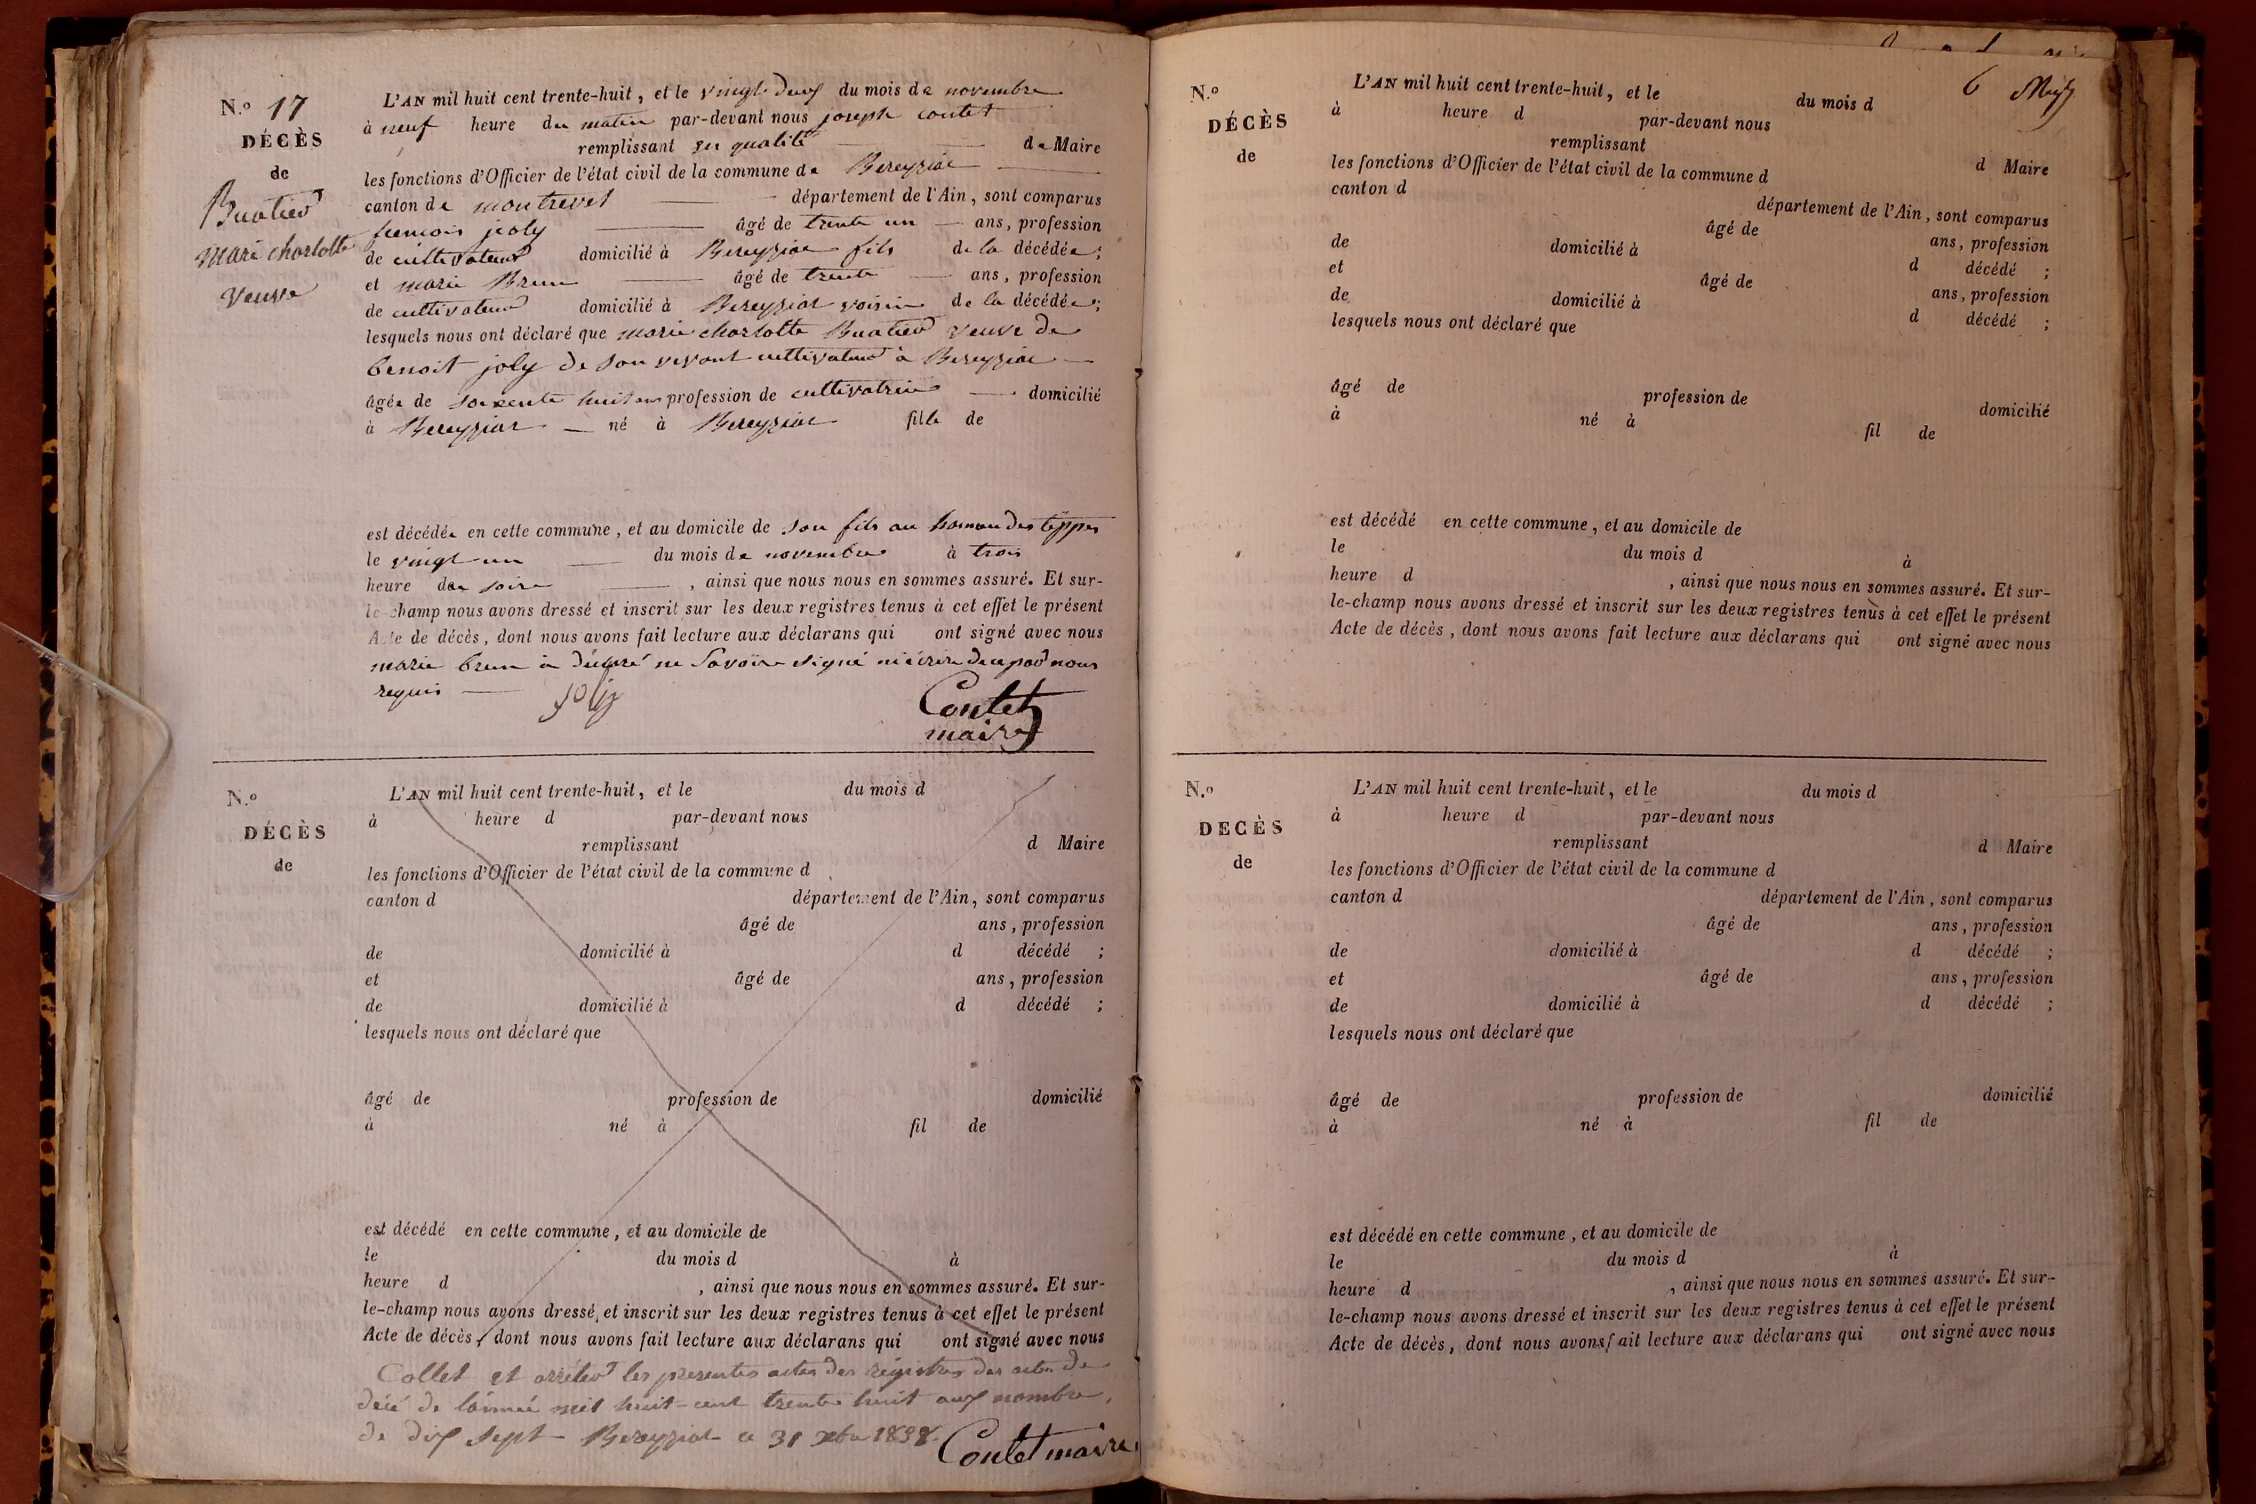 N.º 17
DÉCÈS
de
Buatier
Marie charlotte
veuve
L'AN mil huit cent trente-huit, et le vingt deux du mois de novembre
à neuf heure du matin par-devant nous joseph contet
remplissant en qualité de Maire
les fonctions d'Officier de l'état civil de la commune de Bereyziat
canton de montrevel département de l'Ain, sont comparus
joly âgé de trente un ans, profession
de cultivateur domicilié à Bereyziat fils de la décédée;
et marie Brun âgé de trente ans, profession
de cultivateur domicilié à Bereyziat voisin de la décédée;
lesquels nous ont déclaré que marie charlotte Buatier veuve de
benoit joly de son vivant cultivateur à Bereyziat
âgée de soixente huit ans profession de cultivatrice domicilié
à Bereyziat né à Bereyziat fille de
est décédée en cette commune, et au domicile de son fils au hameau des teppes
le vingt un du mois de novembre à trois
heure du soire, ainsi que nous nous en sommes assuré. Et sur-
le-champ nous avons dressé et inscrit sur les deux registres tenus à cet effet le présent
Acte de décès, dont nous avons fait lecture aux déclarans qui ont signé avec nous
marie brun a déclaré ne Savoire signé ni écrire de ce par nous
requis joly
Contet
maire
N.º
DÉCÈS
de
L'AN mil huit cent trente-huit, et le du mois d
à heure d par-devant nous
remplissant d Maire
les fonctions d'Officier de l'état civil de la commune d
canton d département de l'Ain, sont comparus
âgé de ans, profession
de domicilié à d décédé ;
et âgé de ans, profession
de domicilié à d décédé ;
lesquels nous ont déclaré que
âgé de profession de domicilié
à né à fil de
est décédé en cette commune, et au domicile de
le du mois d à
heure d , ainsi que nous nous en sommes assuré. Et sur-
le-champ nous avons dressé, et inscrit sur les deux registres tenus à cet effet le présent
Acte de décès, dont nous avons fait lecture aux déclarans qui ont signé avec nous
Collet et arrêter les presentes actes des régistres des actes de
décé de l'année mil huit-cent trente huit aux nombre
de dix sept Bereyziat ce 31 xbre 1838
Contet maire
6
N.º
DÉCÈS
de
L'AN mil huit cent trente-huit, et le du mois d
à heure d par-devant nous
remplissant d Maire
les fonctions d'Officier de l'état civil de la commune d
canton d département de l'Ain, sont comparus
âgé de ans, profession
de domicilié à d décédé ;
et âgé de ans, profession
de domicilié à d décédé ;
lesquels nous ont déclaré que
âgé de profession de domicilié
à né à fil de
est décédé en cette commune, et au domicile de
le du mois d à
heure d , ainsi que nous nous en sommes assuré. Et sur-
le-champ nous avons dressé et inscrit sur les deux registres tenus à cet effet le présent
Acte de décès, dont nous avons fait lecture aux déclarans qui ont signé avec nous
N.º
DECÈS
de
L'AN mil huit cent trente-huit, et le du mois d
à heure d par-devant nous
remplissant d Maire
les fonctions d'Officier de l'état civil de la commune d
canton d département de l'Ain, sont comparus
âgé de ans, profession
de domicilié à d décédé ;
et âgé de ans, profession
de domicilié à d décédé ;
lesquels nous ont déclaré que
âgé de profession de domicilié
à né à fil de
est décédé en cette commune, et au domicile de
le du mois d à
heure d , ainsi que nous nous en sommes assuré. Et sur-
le-champ nous avons dressé et inscrit sur les deux registres tenus à cet effet le présent
Acte de décès, dont nous avons fait lecture aux déclarans qui ont signé avec nous